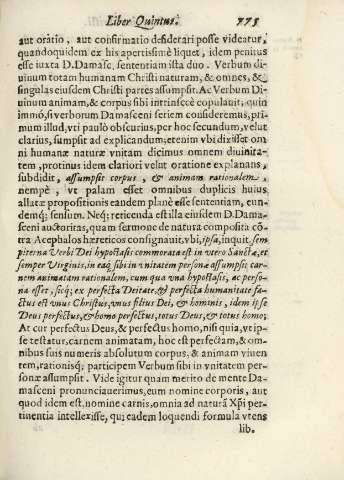 Liber Quintus. 775
aut oratio, aut confirmatio desiderari posse videatur,
quandoquidem ex his apertissimè liquet, idem penitus
esse iuxta D. Damasc. sententiam ista duo. Verbum di-
uinum totam humanam Christi naturam, & omnes, &
singulas eiusdem Christi partes assumpsit. Ac Verbum Di-
uinum animam, & corpus sibi intrinsecè copulauit; quin
immò, si verborum Damasceni seriem consideremus, pri-
mum illud, vti paulò obscurius, per hoc secundum, velut
clarius, sumpsit ad explicandum; etenim vbi dixisset om
ni humanæ naturæ vnitam dicimus omnem diuinita-
tem, protinus idem clariori velut oratione explanans,
subdidit, assumpsit corpus, & animam rationalem,
nempè, vt palam esset omnibus duplicis huius
allatæ propositionis eandem planè esse sententiam, eun-
demq; sensum. Neq; reticenda est illa eiusdem D. Dama-
sceni auctoritas, quam sermone de natura composita cō-
tra Acephalos hæreticos consignauit, vbi, ipsa, inquit, sem
piterna Verbi Dei hypostasis commorata est in vtero Sanctæ, et
semper Virginis, in eaq; sibi in vnitatem personæ assumpsit car-
nem animatam rationalem, cum qua vna hypostasis, ac perso-
na esset, sicq; ex perfecta Deitate, & perfecta humanitate fa-
ctus est vnus Christus, vnus filius Dei, & hominis, idem ipse
Deus perfectus, & homo perfectus, totus Deus, & totus homo;
At cur perfectus Deus, & perfectus homo, nisi quia, vt ip-
se testatur, carnem animatam, hoc est perfectam, & om-
nibus suis numeris absolutum corpus, & animam viuen
tem, rationisq; participem Verbum sibi in vnitatem per-
sonæ assumpsit. Vide igitur quam merito de mente Da-
masceni pronunciauerimus, eum nomine corporis, aut
quod idem est, nomine carnis, omnia ad naturā Xp̄i per-
tinentia intellexisse, qui eadem loquendi formula vtens
lib.